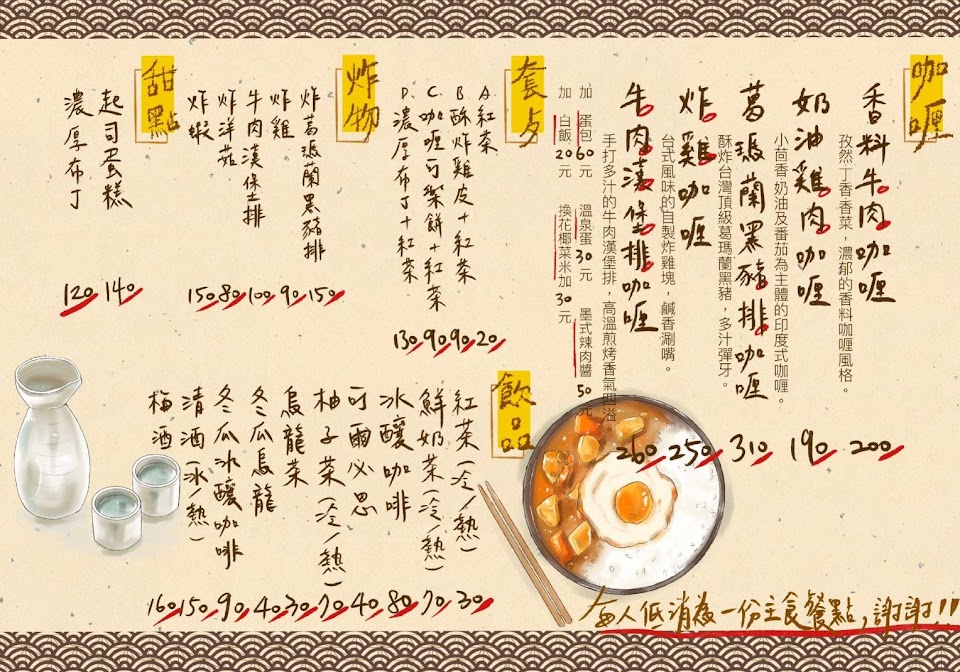 咖喱
香料牛肉咖喱
孜然丁香香菜，濃郁的香料咖喱風格。
200
奶油雞肉咖喱
小茴香奶油及番茄為主體的印度式咖喱。
190
葛瑪蘭黑豬排咖喱
酥炸台灣頂級葛瑪蘭黑豬，多汁彈牙。
310
炸雞咖喱
台式風味的自製炸雞塊，鹹香涮嘴。
250
牛肉漢堡排咖喱
手打多汁的牛肉漢堡排，高溫煎烤香氣四溢。
260
加 蛋包60元 溫泉蛋30元 墨式辣肉醬50元
加 白飯20元 換花椰菜米加30元
套夕
A.紅茶
20
B 酥炸雞皮+紅茶
90
C.咖喱可樂餅+紅茶
90
D.濃厚布丁+紅茶
130
炸物
炸葛瑪蘭黑豬排
150
炸雞
90
牛肉漢堡排
100
炸洋菇
80
炸蝦
150
甜點
起司蛋糕
140
濃厚布丁
120
飲品
紅茶(冷/熱)
30
鮮奶茶(冷/熱)
70
冰釀咖啡
80
可爾必思
40
柚子茶(冷/熱)
70
烏龍茶
30
冬瓜烏龍
40
冬瓜冰釀咖啡
90
清酒(冰/熱)
150
梅酒
160
每人低消為一份主食餐點,謝謝!!